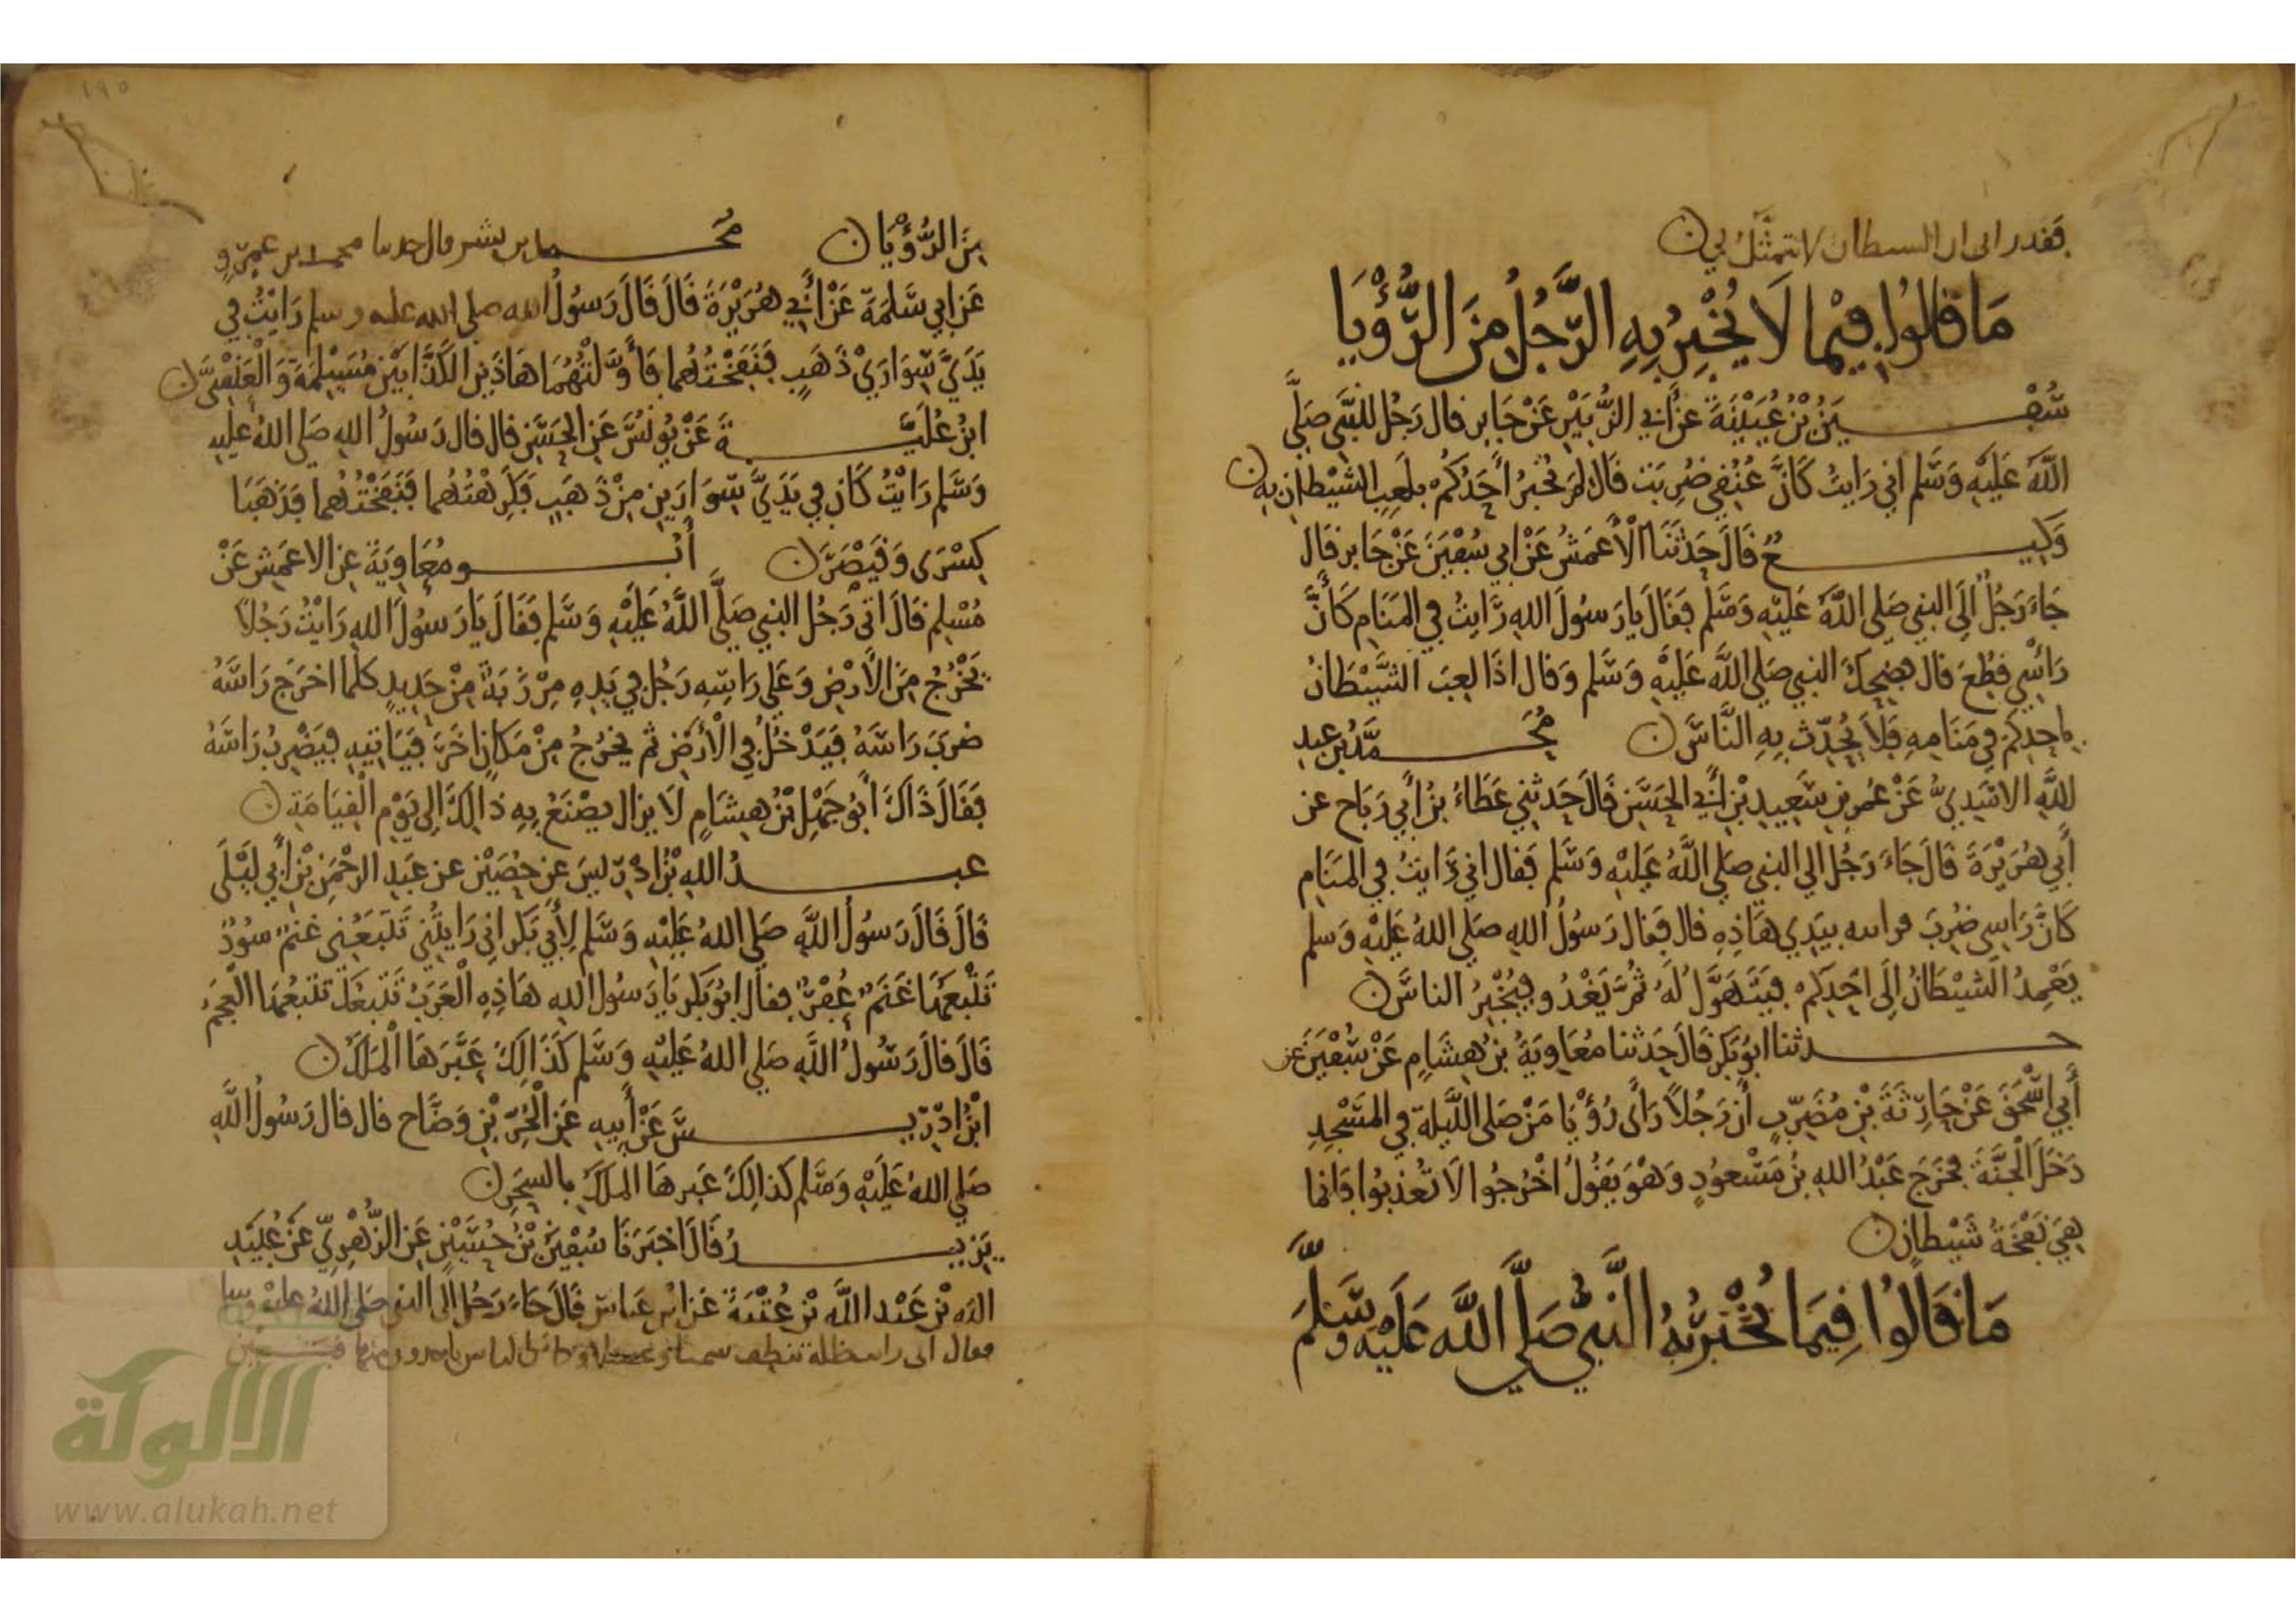 فقد رانى ان الشيطان لا يتمثل بي
مَا قالُوا فِيْمَا لَا يُخْبِرُ بِهِ الرَّجُلُ مِنَ الرُّؤْيَا
سُفْيَنُ بْنُ عُيَيْنَةَ عَنْ أَبي الزُّبَيْرِ عَنْ جَابِرٍ قال رَجُل للنَّبِي صَلَّى
اللَّهُ عَلَيْهِ وَسَلَّم اني رَايتُ كَانَّ عُنُقِي ضُرِبَت قَالَ لِمَ يُخْبِرُ أَحَدُكُمْ بِلَعِبِ الشَّيْطَانِ بِهِ
وَكِيعٌ قَالَ حَدَثَنَا الْأَعمَشُ عَنْ ابي سُفْيَنَ عَنْ جَابرٍ قَالَ
جَاءَ رَجُلٌ إِلَى النبي صَلى اللَّهُ عَلَيْهِ وَسَلَّمَ فقَالَ يا رَسُولَ اللهِ رَايتُ فِي المَنَامِ كَأَنَّ
رَأْسِي قُطِعَ قال فضَحِكَ النبي صَلى اللَّهُ عَلَيْهِ وَسَلَّم وَقال اذَا لعِبَ الشَّيْطَانُ
بِاحدِكُم فِي مَنَامِهِ فَلَا يُحَدِّث بِهِ النَّاسَ مُحَمَّدُ بْن عبد
اللَّهِ الاسَدِيُّ عَنْ عُمَر بنِ سَعِيدِ بْنِ أَبي الحسَيْنِ قَالَ حَدثني عَطَاءُ بْنُ أَبي رَبَاح عن
أَبي هُرَيْرَةَ قَالَ جَاءَ رَجُل الي النبي صَلي اللَّهُ عَلَيْهِ وَسَلم فَقال اني رَايتُ فِي المَنَامِ
كَانَّ رَاسِى ضُرِبَ فراىته بيَدِي هَاذِهِ قال فَقال رَسُولُ اللهِ صَلَى اللهُ عَلَيْهِ وَسلم
يَعْمِدُ الشَيْطَانُ إِلَى احَدِكُمْ فيَتَهَوَّلُ لَهُ ثُمَّ يَغْدُو فيُخْبِرُ الناسَ
حدثنا ابُو بَكرٍ قَالَ حَدَثنا مُعَاوِيَةُ بْنُ هِشَامٍ عَنْ سُفْيَنَ عَن
أَبي اسْحَقَ عَنْ حَارِثَةَ بْنِ مُضَرِّبٍ أَن رَجُلًا رَأَى رُؤْيَا مَنْ صَلى اللَّيلة فِي المَسْجِدِ
دَخَلَ الْجَنَّةَ فخَرَجَ عَبْدُ اللهِ بْنُ مَسْعُودٍ وَهْوَ يَقُولُ اخْرُجُوا لَا تَغْتَرُوا فَانما
هِيَ نَفْخَةُ شَيْطانٍ
مَا قَالُوا فِيمَا يُخْبِرُهُ النَّبيُّ صَلَّى اللَّه عَلَيْه وَسَّلَمَ
مِنَ الرُّؤْيَا مُحَمد بن بشر قال حدثنا محمد بن عمرو
عَن ابي سَلمَةَ عَنْ أَبي هُرَيْرَةَ قَالَ قَالَ رَسُولُ الله صلى الله عليه وسلم رَايْتُ فِي
يَدَيَّ سِوَارَيْ ذَهَبٍ فنَفَخْتُهُما فَأَوَّلْتُهُمَا هَاذَيْنِ الكَذَّابَيْنِ مُسَيْلِمَةَ وَالْعَنْسِيَّ
ابْنُ عُلَيَّةَ عَنْ يُونُسَ عَنِ الحَسَنِ قال قال رَسُولُ اللهِ صَلى اللهُ عَليهِ
وَسَلم رَايْتُ كَان فِي يَدَيَّ سِوَارَينِ مِنْ ذَهَبٍ فَكَرِهْتُهُما فَنَفَخْتُهُما فذَهَبَا
كِسْرَى وَقَيْصَرَ أَبُو مُعَاوِيَةَ عن الاعمَشِ عَنْ
مُسْلِمٍ قَالَ اتَى رَجُل النبي صَلَّى اللَّهُ عَلَيْهِ وَسَلَّم فَقَالَ يَا رَسُولَ اللهِ رَايْتُ رَجُلًا
يَخْرُجُ مِنَ الأَرْضِ وَعَلَي رَاسِهِ رَجُل فِي يَدِهِ مِرْزَبَة مِنْ حَدِيدٍ كلما اخرَج رَاسَهُ
ضرَبَ رَاسَهُ فَيَدْخُلُ فِي الْأَرْضِ ثم يخرُجُ مِنْ مَكانٍ اخَرَ فَيَاتِيهِ فيَضْرِبُ رَاسَهُ
فقَالَ ذَاكَ أَبُو جَهْلِ بْنُ هِشَامٍ لَا يزال يصْنَعُ بِهِ ذَالِكَ إِلى يَوْمِ الْقِيَامَةِ
عبدُ اللهِ بْنُ ادْرِيسَ عن حُصَيْنٍ عن عَبْدِ الرَّحْمَنِ بْنِ أَبِي لَيْلَى
قَالَ قَالَ رَسُولُ اللَّهِ صَلى اللهُ عَلَيْهِ وَسَلَّم لِأَبِي بَكرٍ اني رَايتُنِي تَتْبَعُنِي غَنَمٌ سُودٌ
تَتْبَعُهَا غَنَمٌ عُفْرٌ فقال ابُو بَكر يَا رَسُول اللهِ هَاذِهِ الْعَرَبُ تَتبَعكَ تتبَعُهَا الْعَجَمُ
قَالَ قالَ رَسُولُ اللَّهِ صَلي اللهُ عَلَيْهِ وَسَلم كَذَالِكَ عَبَّرَهَا الْمَلَكُ
ابْنُ ادْرِيسَ عَنْ أَبِيهِ عَن الْحُرِّ بْنِ وَضَّاح قال قال رَسُولُ اللَّهِ
صَلي اللهُ عَلَيْهِ وَسَلم كَذالِكَ عَبرهَا المَلَكُ بالسحَرِ
يَزيدُ قَالَ اخبَرَنَا سُفْيَنُ بْنُ حُسَيْنٍ عَن الزُّهْرِيِّ عَنْ عُبَيْدِ
الله بْن عَبْدِ اللَّه بْن عُتْبَةَ عَن ابْن عَبَاس قَالَ جَاءَ رَجُل الَى النبي صَلي اللهُ عليْه وسلم
فقال انى رايت ظلة تنطف سمنا وعسلا وكان الناس ياخذون منها
الألوكة
www.alukah.net